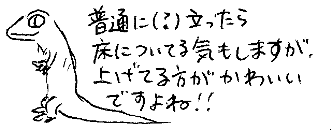 普通に(る)立ったら
床についてる気もしますが、
上げてる方がかわいい
ですよね!!